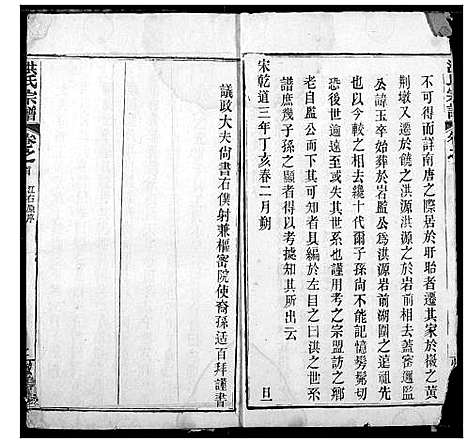 洪氏宗譜
卷之
不可得而詳南唐之際居於盱眙者遷其家於徽之黃
荆墩又遷於饒之洪源洪源之於岩前相去蓋密邇監
公諱玉卒始葬於岩監公為洪源岩前湖圍之遠祖先
也以今較之相去纔十代爾子孫尚不能記憶髣髴切
恐後世逾遠至或失其世系也謹用考之宗盟訪之鄉
老自監公而下其可知者具編於左目之曰洪之世系
譜庶幾子孫之顯者得以考據知其所出云
宋乾道三年丁亥春二月朔 旦
議政大夫尚書右僕射兼樞密院使裔孫适百拜謹書
洪氏宗譜
卷之首
江右源序